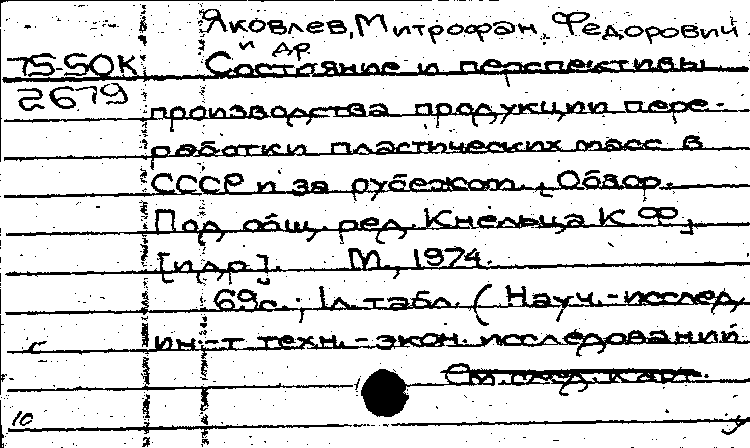 Яковлев, Митрофан Федорович
и др
75-50К Состояние и перспективы
2679
производства продукции пере-
работки пластических масс в
СССР и за рубежом. Обзор.
Под общ. ред. Кнельца К Ф,
[и др]. М., 1974.
69с.; 1л. табл. (Науч.-исслед,
ин-т техн.-экон. исследований
См. след. карт.
10